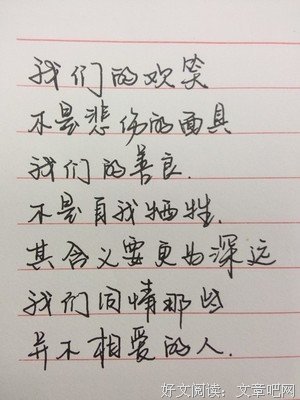 我们的欢笑
不是悲伤的面具
我们的善良.
不是自我牺牲.
其含义要更为深远
我们同情那些
并不相爱的人.
好文阅读：文章吧网